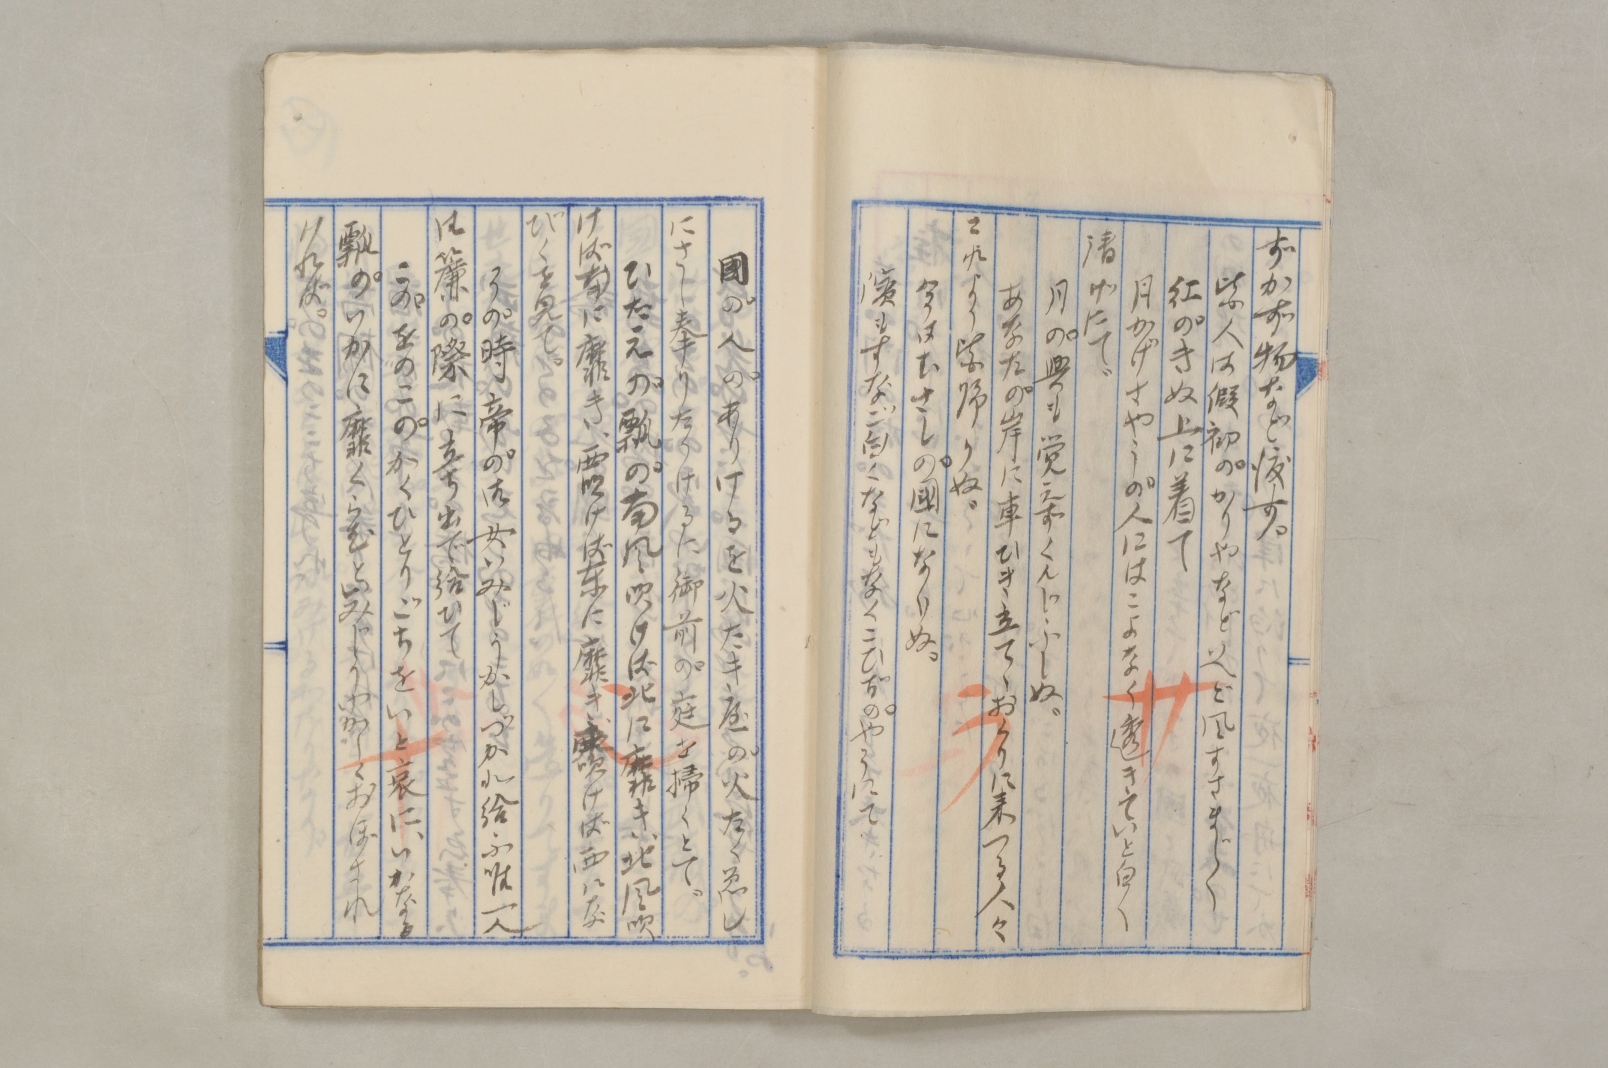 ずかず物など渡す。
此人は假初のかりやなど人ど風すさまじく
紅のきぬ上に着て
月かげさやうの人にはこよなく透きていと白く
清げにて、
月の興も覚えずくんじふしぬ。
あなたの岸に車ひき立てゝおくりに来つる人々
これより皆帰りぬ。
今はむさしの國になりぬ。
濱もすなご白くなどもなくこひぢのやうにて
國の人のありけるを火たき屋の火たく衛し
にさし奉りたりけるに御前の庭を掃くとて、
ひたえの瓢の南風吹けば北に靡き、北風吹
けば南に靡き、西吹けば東に靡き、東吹けば西に靡
びくを見て。
その時帝の御女いみじうかしづかれ給ふ唯一人
御簾の際に立ち出で給ひて
このをのこのかくひとりごちをいと哀に、いかなる
瓢のいかに靡くらむといみじうゆかしくおぼされ
ければ。
サ
ラ
シ
ナ